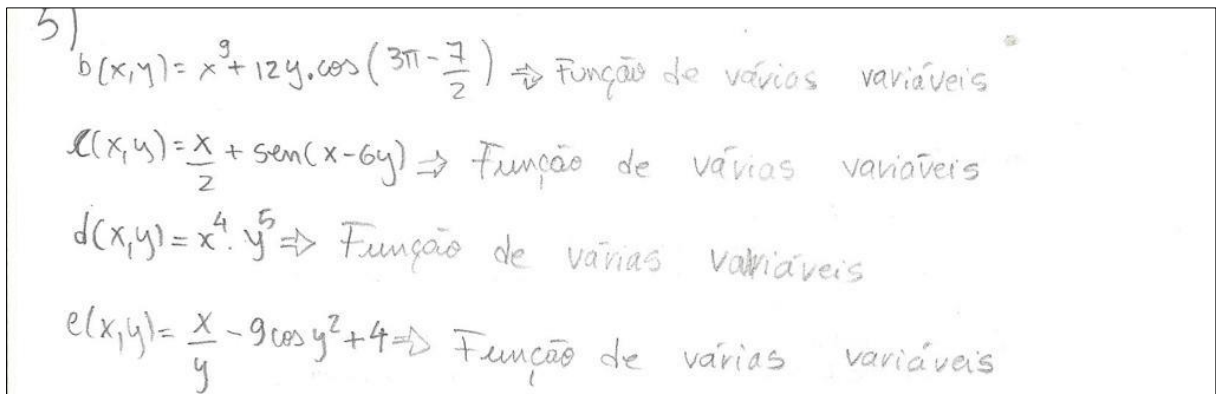 5)
b(x,y) = x^9 + 12y.cos(3π - 7/2) ⇒ Função de vários variáveis
c(x,y) = x/2 + sen(x-6y) ⇒ Função de várias variáveis
d(x,y) = x^4 . y^5 ⇒ Função de várias variáveis
e(x,y) = x/y - 9cos y^2 + 4 ⇒ Função de várias variáveis